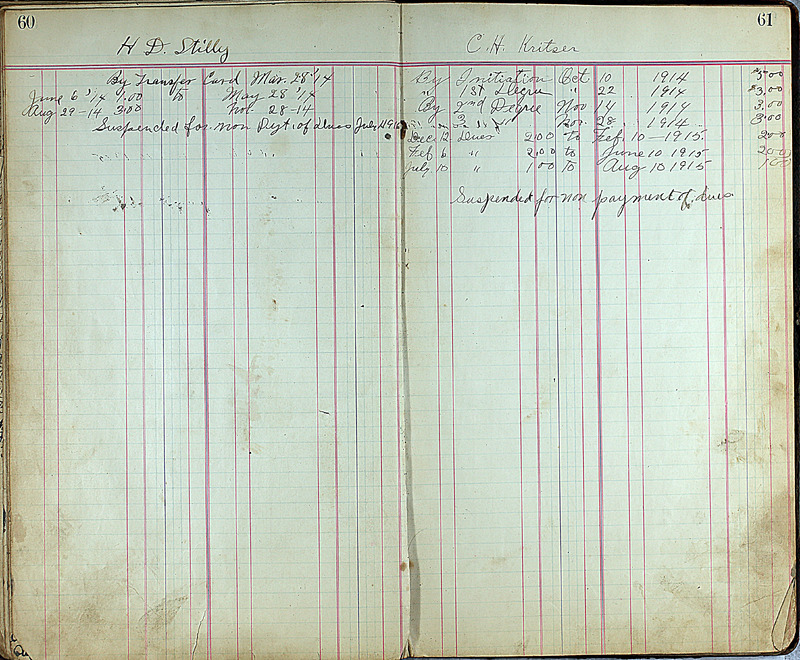 60
H. D. Stilly
By Transfer Card Mar. 28 '14
June 6 '14 1.00 to May 28 '14
Aug 29-14 3.00 Nov 28-14
Suspended for non Pyt. of dues July 1916
61
C. H. Kritser
By Initiation Oct 10 1914 $5.00
" 1st Degree " 22 1914 $3.00
By 2nd Degree Nov 14 1914 3.00
" 3 " " Nov. 28. 1914 3.00
Dec 12 Dues 2.00 to Feb. 10-1915 200
Feb 6 " 2.00 to June 10 1915 200
July 10 " 1.00 to Aug 10 1915 100
Suspended for non payment of dues